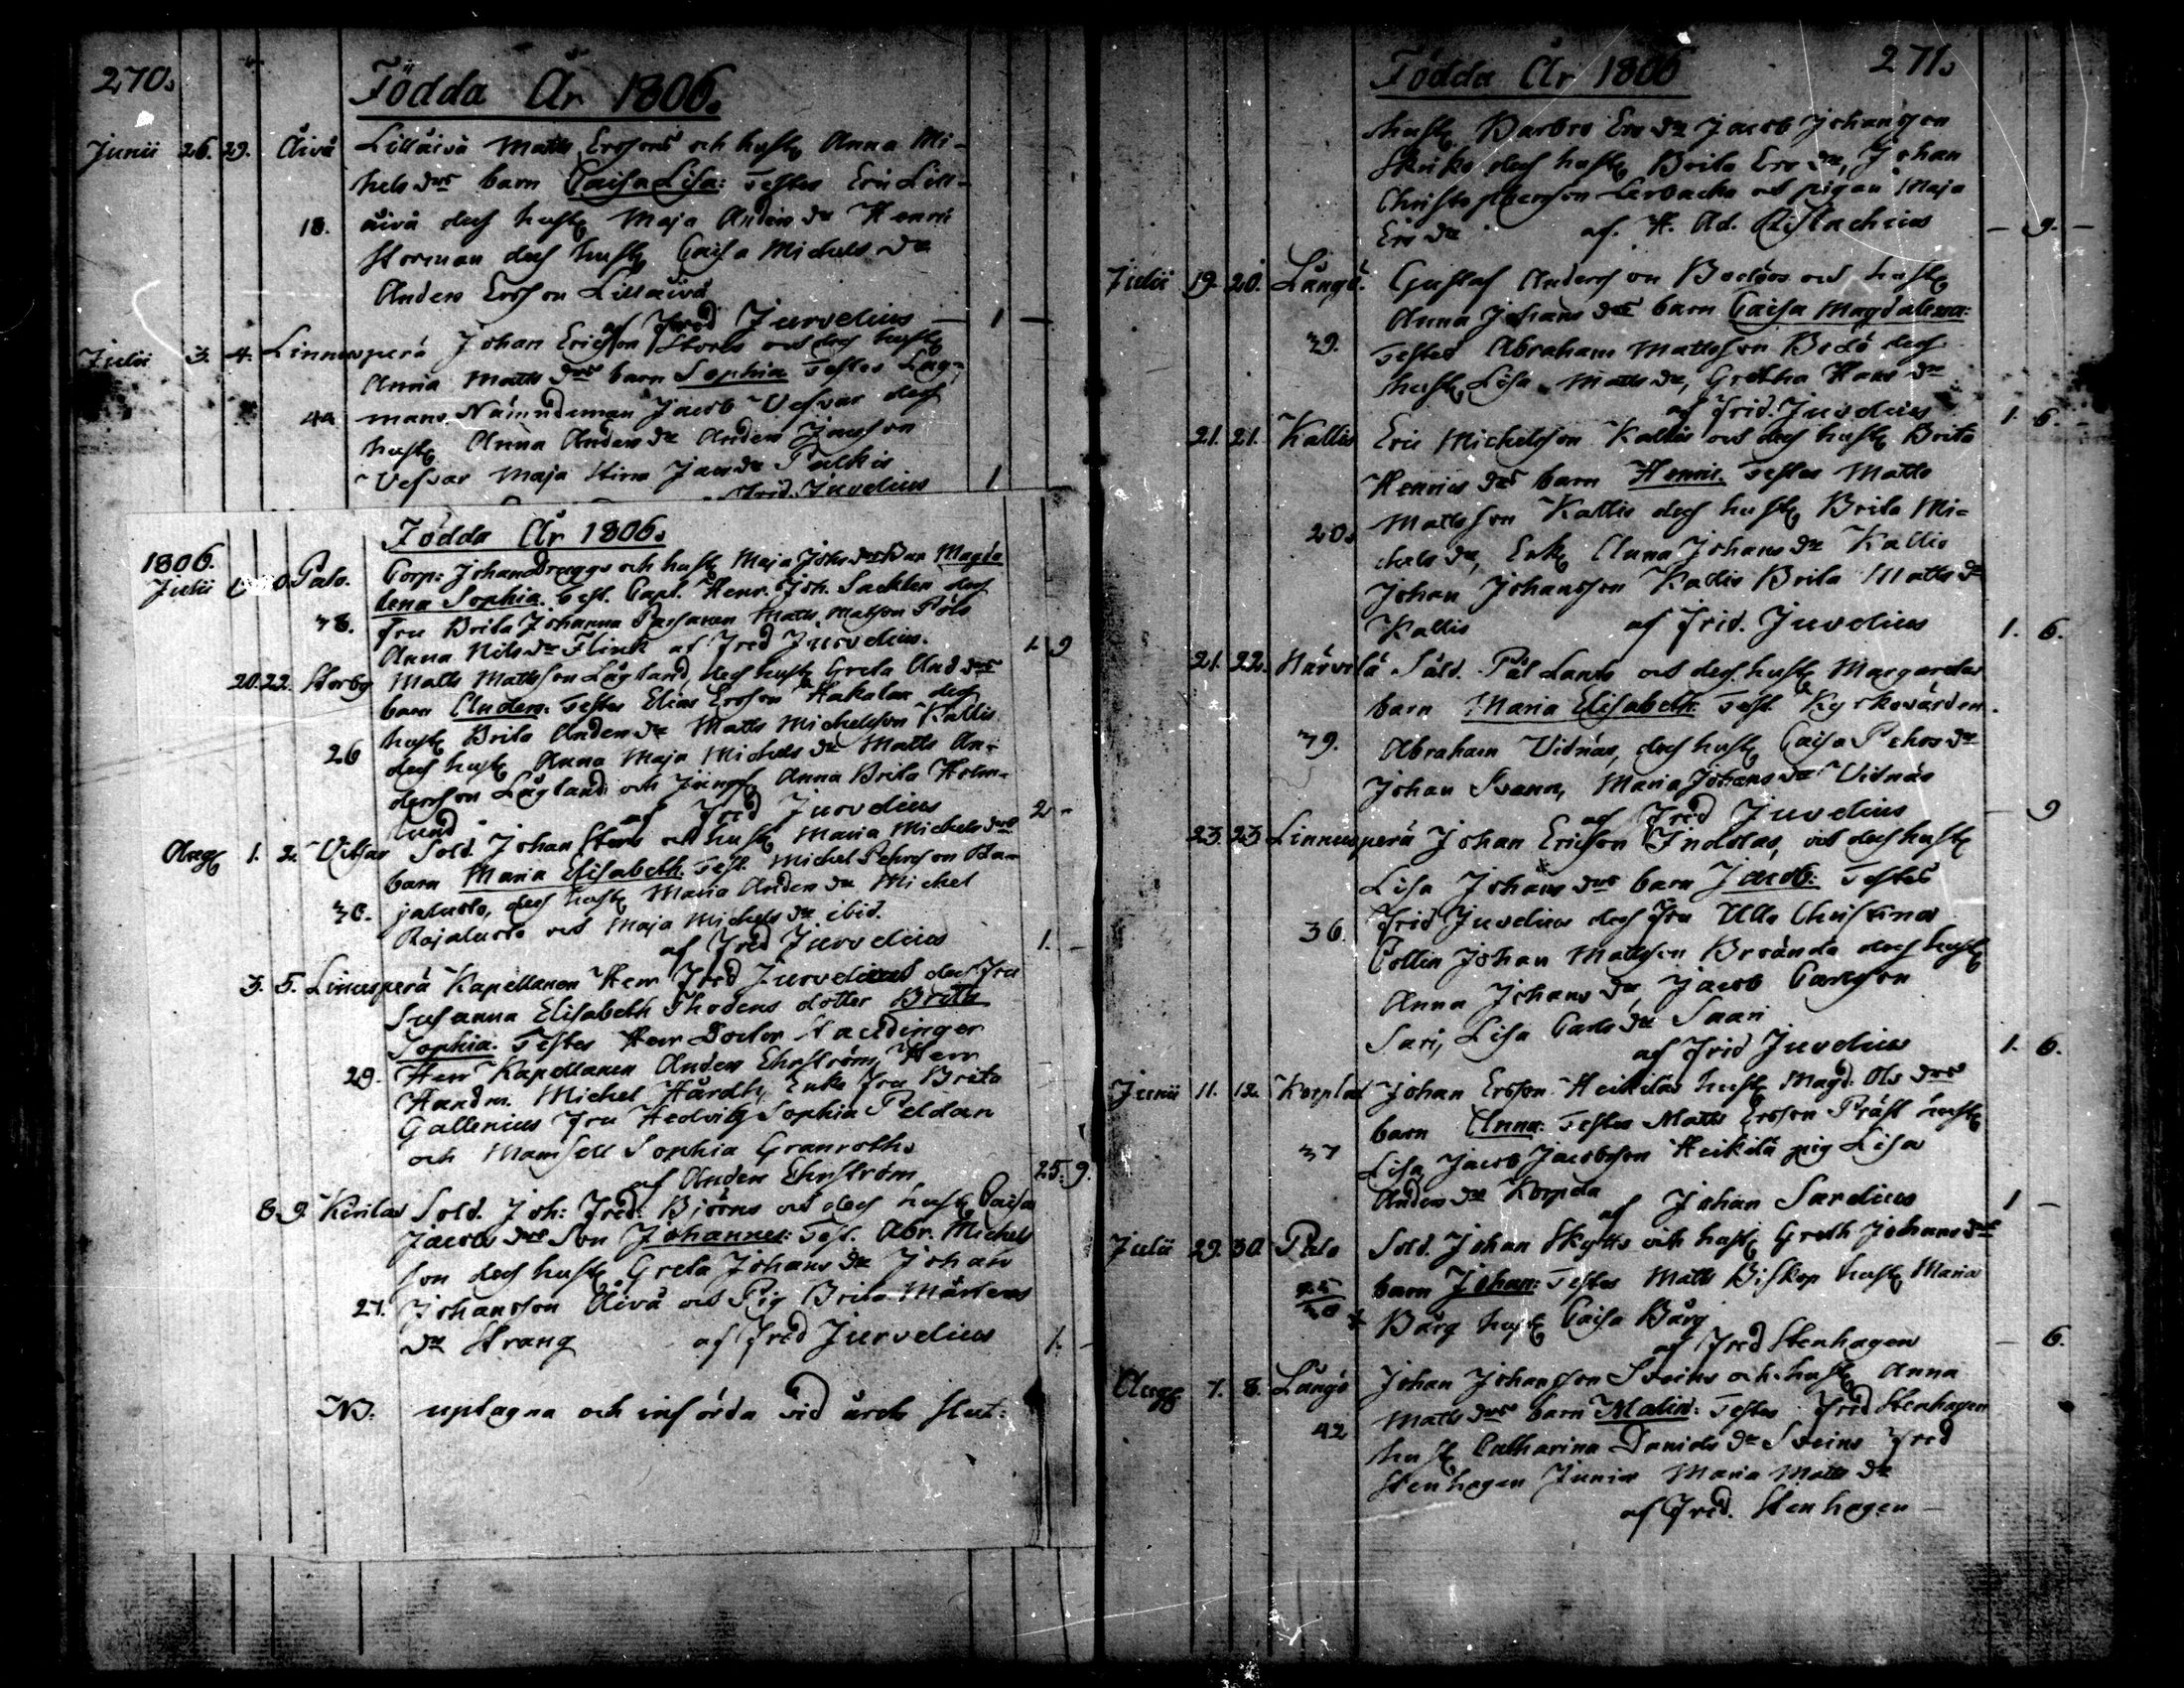 270.
Födda År 1806.
Junii 26. 29. Åivå Lillåivå Matts Erssons och hust Anna Mi-
hels drs barn Caisa Lisa: Testes Eric Lill-
18. åivå des hust Maja Anders dr Henric
Storman des hust Caisa Michels dr
Anders Ersson Lillåivå
af Fred Jurvelius — 1 —
Julii 3. 4. Linnusperä Johan Ericsson Stores och des hust
Anna Matts drs barn Sophia Testes Lag-
44 mans Nämndeman Jacob Vesvar des
hust Anna Anders dr Anders Jacsson
Vesvar Maja Stina Jacs dr Palkis
Frid. Juvelius 1
Födda År 1806.
1806.
Julii Palo. Corp: Johan Draggs och hust Maja Johs drs Barn Magda
lena Sophia. Test. Capt. Henr. Joh. Sacklen des
38. fru Brita Johanna Matts Matsson Pålo
Anna Nils dr Flink af Fred Jurvelius. 1. 9
20. 22. Storby Matts Mattsson Lågland, des hust Greta And drs
barn Anders. Testes Elias Ersson Hakalax des
hust Brita Anders dr Matts Michelsson Kallis
26 des hust Anna Maja Michels dr Matts An-
dersson Lågland och Jungf Anna Brita Holm-
lund af Fred Jurvelius 2 -
Aug 1. 2. Vitsar Sold. Johan Stark och hust Maria Michels drs
barn Maria Elisabeth. Test. Michel Pehrsson Ra-
36. jaluoto, des hust Maria Anders dr Michel
Rajaluoto och Maja Michels dr ibid.
af Fred Jurvelius 1. -
3. 5. Linusperä Kapellanen Herr Fred Jurvelius des Fru
Susanna Elisabeth Thodens dotter Brita
Sophia. Testes Herr Doctor Staudinger
29. Herr Kapellanen Anders Ehrström, Herr
Handm. Michel Hårdh, Enke fru Brita
Gallenius Fru Hedvig Sophia Peldan
och Mamsell Sophia Granroths
af Anders Ehrström 25. 9.
8. 9. Kivilax Sold. Joh: Fred: Björns och des hust Caisa
Jacobs drs Son Johannes: Test. Abr. Michels
son des hust Greta Johans dr Johan
27. Johansson Åivå och Pig Brita Mårtens
dr Strang af Fred Jurvelius 1. -
NB. uptagna och införda vid årets slut:
271.
Födda År 1806
hust Barbro Ers dr Jacob Johansson
Skrike des hust Brita Ers dr, Johan
Christophersson Lerbacka och pigan Maja
Ers dr af. H. Ad. Aschachius — 9. —
Julii 19. 20. Långö. Gustaf Andersson Bodöos och hust
Anna Johans drs barn Caisa Magdalena:
39. Testes Abraham Mattsson Bodö des
hust Lisa Matts dr, Gretha Hans dr
af Frid. Juvelius 1. 6.
21. 21. Kallis Eric Michelsson Kallis och des hust Brita
Henrics drs barn Henric. Testes Matts
20. Mattsson Kallis des hust Brita Mi-
chels dr, Enk Anna Johans dr Kallis
Johan Johansson Kallis Brita Matts dr
Kallis af Frid. Juvelius 1. 6.
21. 22. Närvelä Sold. Pål Lants och des hust Margaretas
barn Maria Elisabeth Test. Kyrkovärden
39. Abraham Vidnäs, des hust Caisa Pehrs dr
Johan Svann, Maria Johans dr Vidnäs
af Fred Juvelius — 9
23. 23. Linnusperä Johan Ericsson Indolas, och des hust
Lisa Johans drs barn Jacob: Testes
36. Frid Juvelius des Fru Ulla Christina
Collin Johan Mattsson Brända des hust
Anna Johans dr, Jacob Carlsson
Sari, Lisa Carls dr Saari
af Frid Juvelius 1. 6.
Junii 11. 12. Korplax Johan Ersson Heikiläs hust Magd. Ols drs
barn Anna: Testes Matts Ersson Präst hust
37 Lisa, Jacob Jacobsson Heikilä pig Lisa
Anders dr Korpela af Johan Sardius 1 -
Julii 29. 30. Palo Sold. Johan Skytts och hust Greth Johans drs
barn Johan: Testes Matts Biskop hust Maria
Bårg hust Caisa Bårg
af Fred Stenhagen — 6.
Aug 7. 8. Långö Johan Johansson Sveins och hust Anna
Matts drs barn Malin: Testes Frid Stenhagen
42 hust Catharina Daniels dr Sveins Fred
Stenhagen Junior Maria Matts dr
af Fred. Stenhagen —